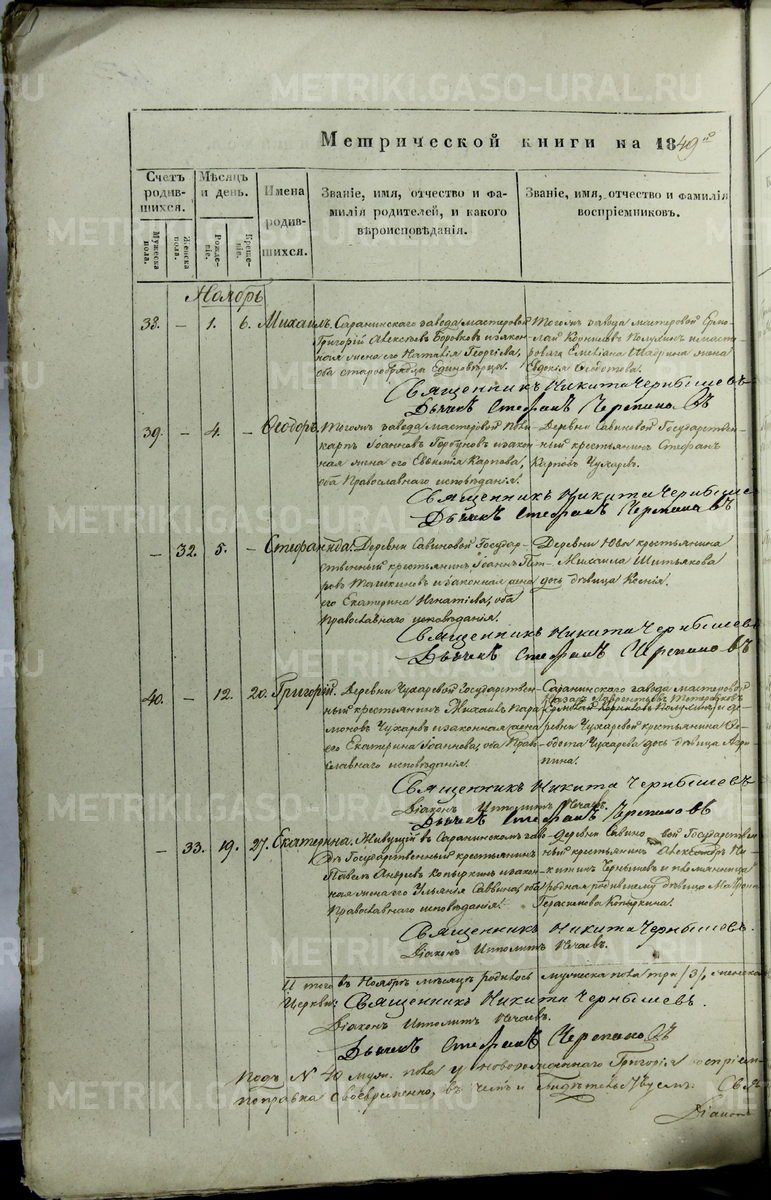 METRIKI.GASO-URAL.RU
Метрической книги на 1849 го
Счетъ родив- шихся.
Мѣсяцъ и день.
Имена родив- шихся.
Званіе, имя, отчество и фа-
милія родителей, и какого
вѣроисповѣданія.
Званіе, имя, отчество и фамилія
воспріемниковъ.
Мужеска пола.
Женска пола.
Рожде- ніе.
Креще- ніе.
Ноябрь
38. – 1. 6. Михаилъ. Саранинскаго завода мастеровой
Григорій Алексѣевъ Боровковъ и закон-
ная жена его Наталія Георгіева,
оба старообрядца Единовѣрца.
Тогожъ завода мастеровой Ермо-
лай Корнилевъ Полухинъ и масте-
роваго Емеліана Шабрина жена
Евдокія Ѳедотова.
Священникъ Никита Чернышевъ
Дьячекъ Стефанъ Черепановъ
39. – 4. – Ѳеодоръ. Тогожъ завода мастеровой Поли-
карпъ Іоанновъ Горбуновъ и закон-
ная жена его Евѳимія Карпова,
оба Православнаго исповѣданія.
Деревни Савиновой Государствен-
ный крестьянинъ Стефанъ
Карповъ Чухаревъ.
Священникъ Никита Чернышевъ
Дьячекъ Стефанъ Черепановъ
– 32. 5. – Стефанида. Деревни Савиновой Государ-
ственный крестьянинъ Іоаннъ Пет-
ровъ Ташкиновъ и законная жена
его Екатерина Игнатіева, оба
Православнаго исповѣданія.
Деревни Юва крестьянина
Михаила Шитьякова
дочь дѣвица Ксенія.
Священникъ Никита Чернышевъ
Дьячекъ Стефанъ Черепановъ
40. – 12. 20. Григорій. Деревни Чухаревой Государствен-
ный крестьянинъ Михаилъ Пара-
моновъ Чухаревъ и законная жена
его Екатерина Іоаннова, оба Право-
славнаго исповѣданія.
Саранинскаго завода мастеровой
Ермолай Корниловъ Полухинъ и де-
ревни Чухаревой крестьянина Ѳе-
дота Чухарева дочь дѣвица Агри-
пина.
Священникъ Никита Чернышевъ
Діаконъ Ипполитъ Нечаевъ.
Дьячекъ Стефанъ Черепановъ
– 33. 19. 27. Екатерина. Живущій въ Саранинскомъ заво-
дѣ Государственный крестьянинъ
Павелъ Андреевъ Копыркинъ и закон-
ная жена его Ульянія Саввина, оба
Православнаго исповѣданія.
Деревни Савиновой Государствен-
ный крестьянинъ Александръ Ни-
китинъ Чернышевъ и племянница
родная родившему дѣвица Матрона
Герасимова Копыркина.
Священникъ Никита Чернышевъ.
Діаконъ Ипполитъ Нечаевъ.
И того въ Ноябрѣ мѣсяцѣ родилось мужеска пола три /3/, женска
Церкви: Священникъ Никита Чернышевъ.
Діаконъ Ипполитъ Нечаевъ.
Дьячекъ Стефанъ Черепановъ
Подъ N 40 муж. пола у новорожденнаго Григорія воспріем
поправка своевременно, въ чемъ и свидѣтельствуемъ. Свя
Діаконъ